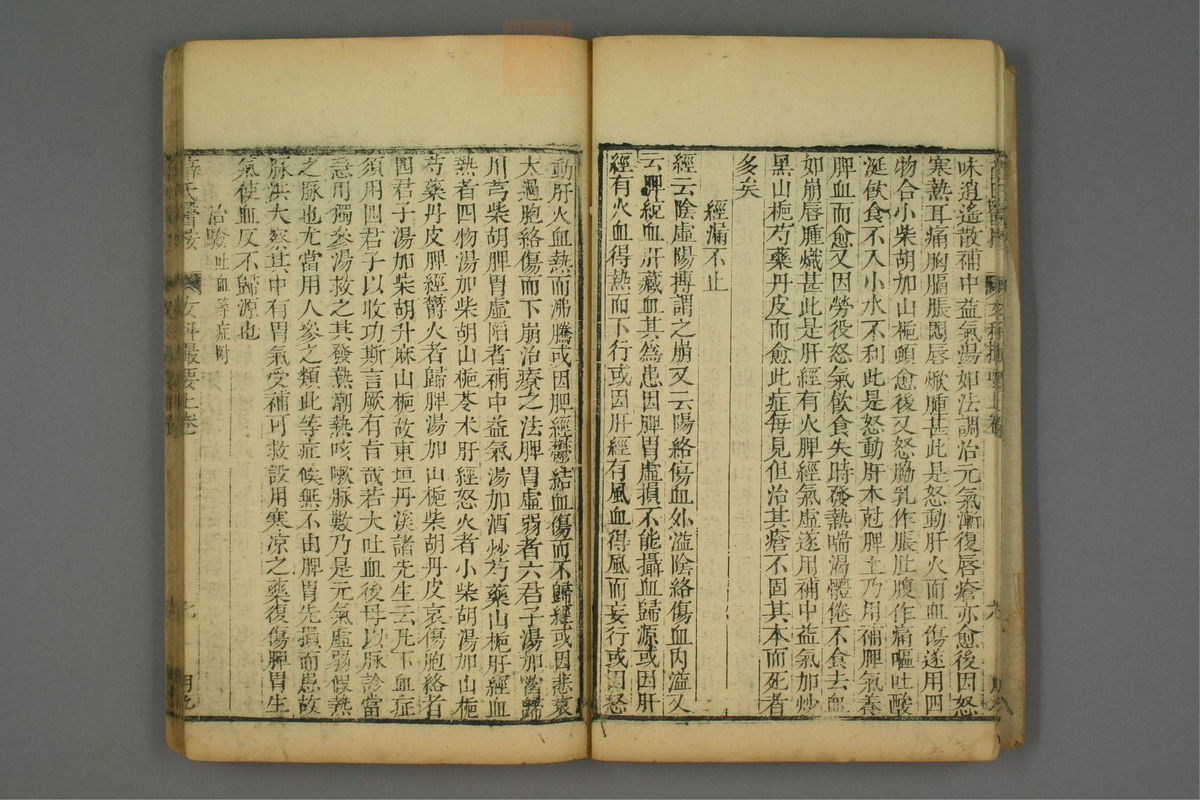 味逍遙散補中益氣湯如法調治元氣漸復唇瘡亦愈後因怒
寒熱耳痛胸膈脹悶唇焮腫甚此是怒動肝火而血傷遂用四
物合小柴胡加山梔頓愈後又怒脇乳作脹肚腹作痛嘔吐酸
涎飲食不入小水不利此是怒動肝木尅脾土乃用補脾氣養
脾血而愈又因勞役怒氣飲食失時發熱喘渴體倦不食去血
如崩唇腫熾甚此是肝經有火脾經氣虛遂用補中益氣加炒
黑山梔芍藥丹皮而愈此症每見但治其瘡不固其本而死者
多矣
經漏不止
經云陰虛陽搏謂之崩又云陽絡傷血外溢陰絡傷血內溢又
云脾統血肝藏血其為患因脾胃虛損不能攝血歸源或因肝
經有火血得熱而下行或因肝經有風血得風而妄行或因怒
動肝火血熱而沸騰或因脾經鬱結血傷而不歸經或因悲哀
太過胞絡傷而下崩治療之法脾胃虛弱者六君子湯加當歸
川芎柴胡脾胃虛陷者補中益氣湯加酒炒芍藥山梔肝經血
熱者四物湯加柴胡山梔苓术肝經怒火者小柴胡湯加山梔
芍藥丹皮脾經鬱火者歸脾湯加山梔柴胡丹皮哀傷胞絡者
四君子湯加柴胡升麻山梔故東垣丹溪諸先生云凡下血症
須用四君子以收功斯言厥有旨哉若大吐血後毋以脉診當
急用獨參湯救之其發熱潮熱咳嗽脉數乃是元氣虛弱假熱
之脉也尤當用人參之類此等症候無不由脾胃先損而患故
脉洪大察其中有胃氣受補可救設用寒凉之藥復傷脾胃生
氣使血反不歸源也
治驗吐血等症附
薛氏醫按 女科撮要上卷